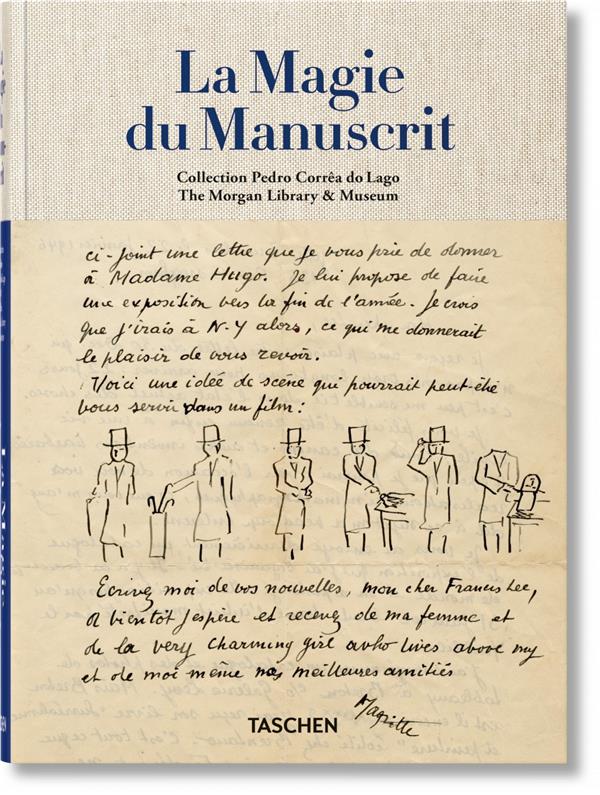 La Magie
du Manuscrit
Collection Pedro Corrêa do Lago
The Morgan Library & Museum
ci-joint une lettre que je vous prie de donner
à Madame Hugo. Je lui propose de faire
une exposition vers la fin de l'année. Je crois
que j'irais à N-Y alors, ce qui me donnerait
le plaisir de vous revoir.
Voici une idée de scéne qui pourrait peut-être
vous servir dans un film :
Ecrivez moi de vos nouvelles, mon cher Francis Lee,
à bientôt j'espère et recevez de ma femme et
de la very charming girl who lives above my
et de moi même nos meilleures amitiés
Magritte
TASCHEN